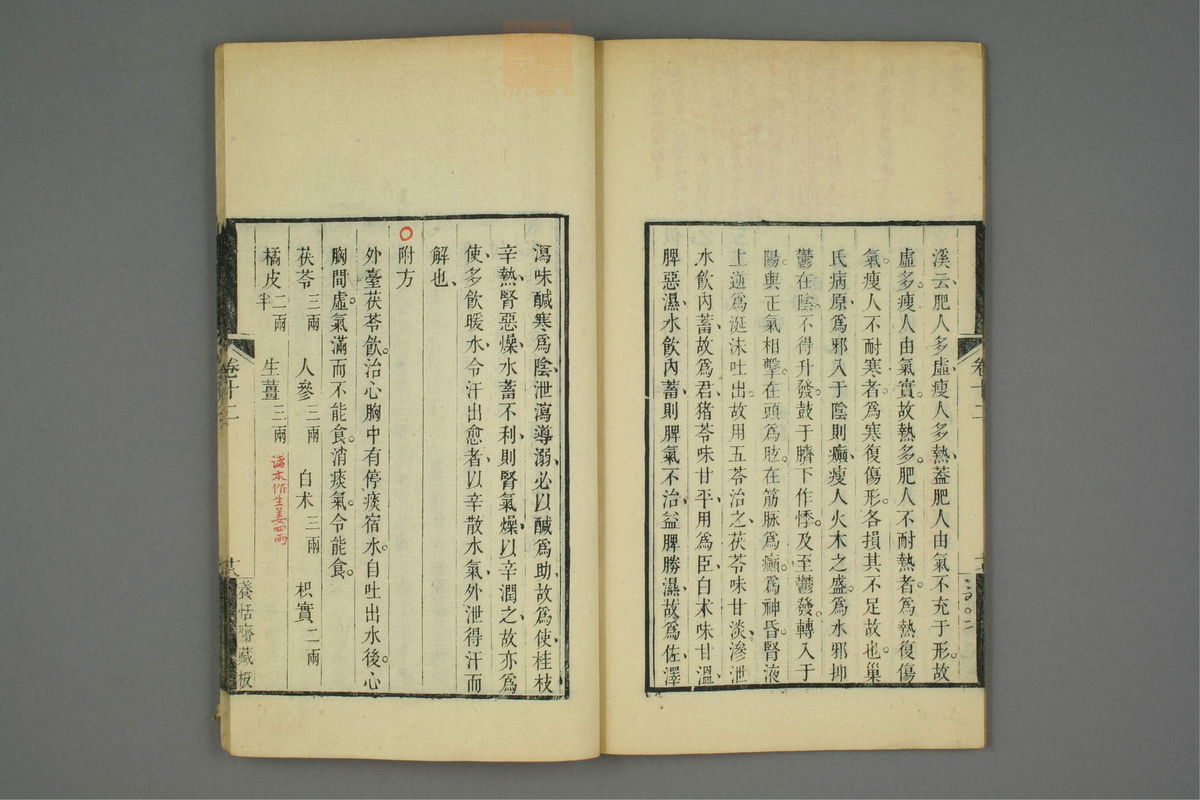 溪云肥人多虛瘦人多熱蓋肥人由氣不充于形故
虛多瘦人由氣實故熱多肥人不耐熱者爲熱復傷
氣瘦人不耐寒者爲寒復傷形各損其不足故也巢
氏病原爲邪入于陰則癲瘦人火木之盛爲水邪抑
鬱在陰不得升發鼓于臍下作悸及至鬱發轉入于
陽與正氣相擊在頭爲眩在筋脉爲癲爲神昏腎液
上逆爲涎沫吐出故用五苓治之茯苓味甘淡滲泄
水飲內蓄故爲君猪苓味甘平用爲臣白术味甘溫
脾惡濕水飲內蓄則脾氣不治益脾勝濕故爲佐澤
卷十二
瀉味鹹寒爲陰泄瀉導溺必以鹹爲助故爲使桂枝
辛熱腎惡燥水蓄不利則腎氣燥以辛潤之故亦爲
使多飲暖水令汗出愈者以辛散水氣外泄得汗而
解也
附方
外臺茯苓飲治心胸中有停痰宿水自吐出水後心
胸間虛氣滿而不能食消痰氣令能食
茯苓三兩 人參三兩 白术三兩 枳實二兩
橘皮二兩半 生薑三兩 諸本作生姜四兩
卷十二
養恬齋藏板